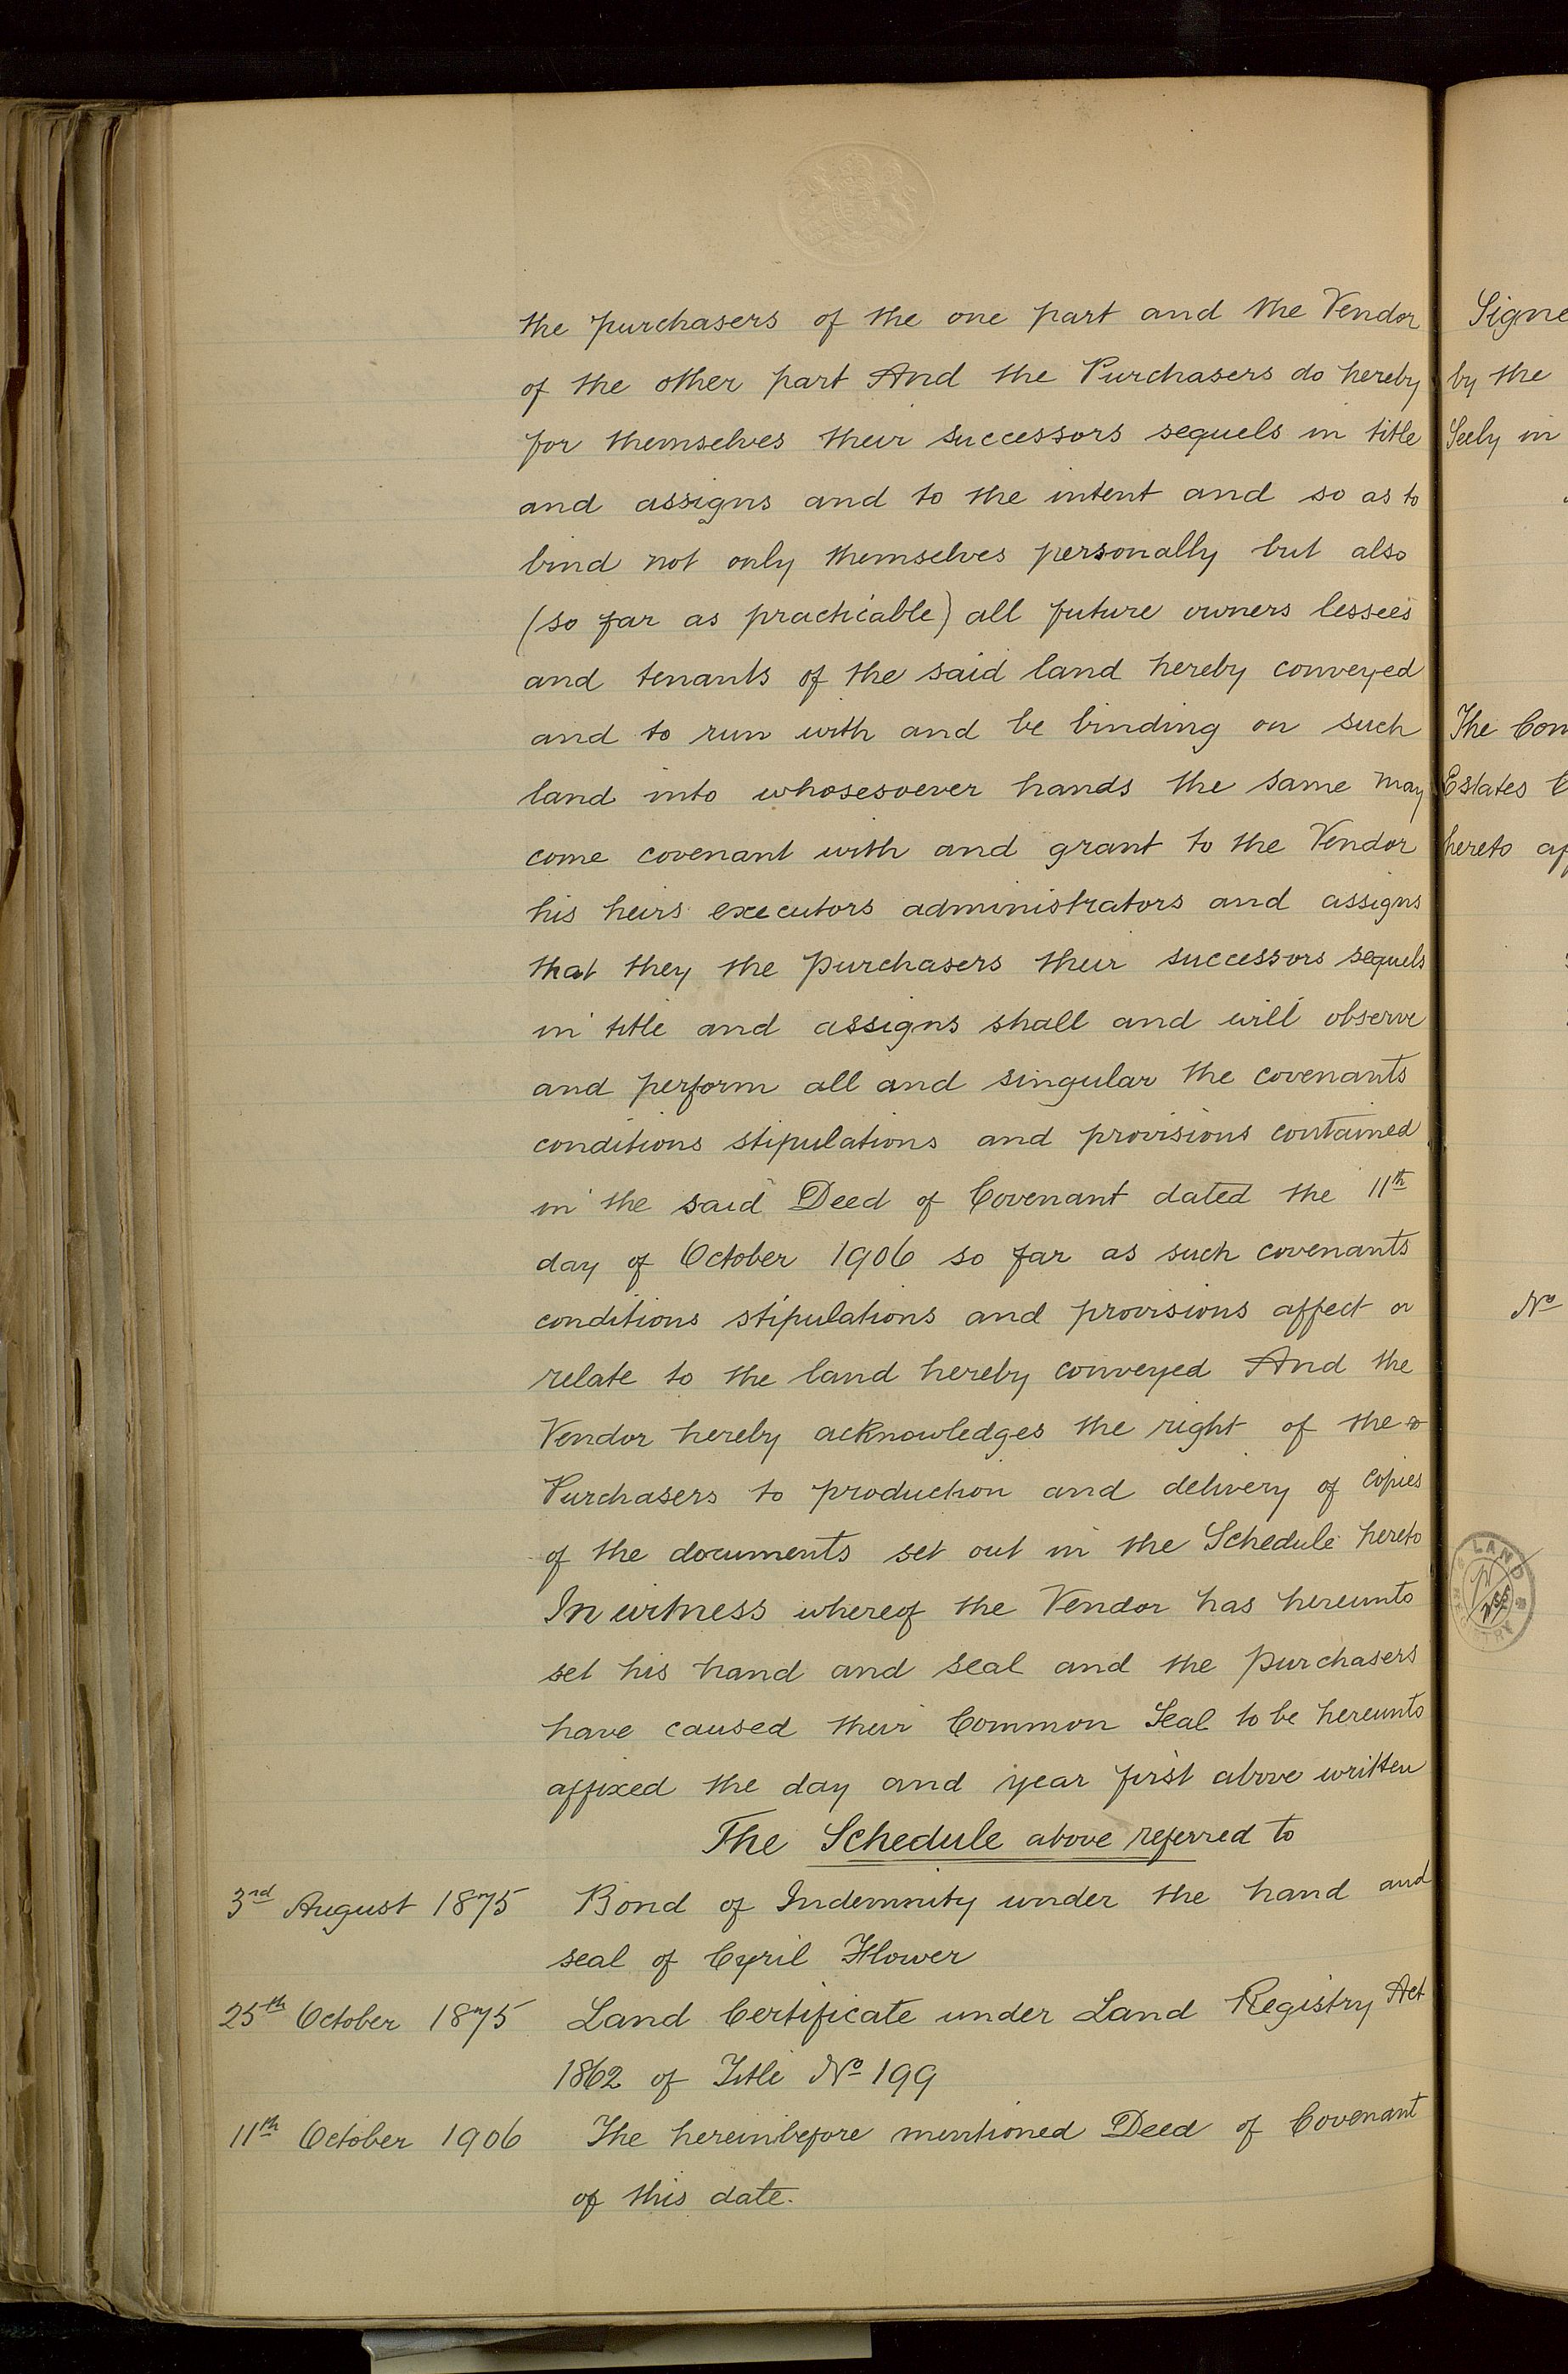 the purchasers of the one part and the Vendor
of the other part And the Purchasers do hereby
for themselves their successors sequels in title
and assigns and to the intent and so as to
bind not only themselves personally but also
(so far as practicable) all future owners lessees
and tenants of the said land hereby conveyed
and to run with and be binding on such
land into whosesoever hands the same may
come covenant with and grant to the Vendor
his heirs executors administrators and assigns
that they the purchasers their successors sequels
in title and assigns shall and will observe
and perform all and singular the covenants
conditions stipulations and provisions contained
in the said Deed of Covenant dated the 11th
day of October 1906 so far as such covenants
conditions stipulations and provisions affect or
relate to the land hereby conveyed And the
Vendor hereby acknowledges the right of the
Purchasers to production and delivery of copies
of the documents set out in the Schedule hereto
In witness whereof the Vendor has hereunto
set his hand and seal and the purchasers
have caused their Common Seal to be hereunto
affixed the day and year first above written
The Schedule above referred to
3rd August 1875 Bond of Indemnity under the hand and
seal of Cyril Flower
25th October 1875 Land Certificate under Land Registry Act
1862 of Title No 199
11th October 1906 The hereinbefore mentioned Deed of Covenant
of this date.
Signe
by the
Seely in
The Com
Estates C
hereto af
No
LAND